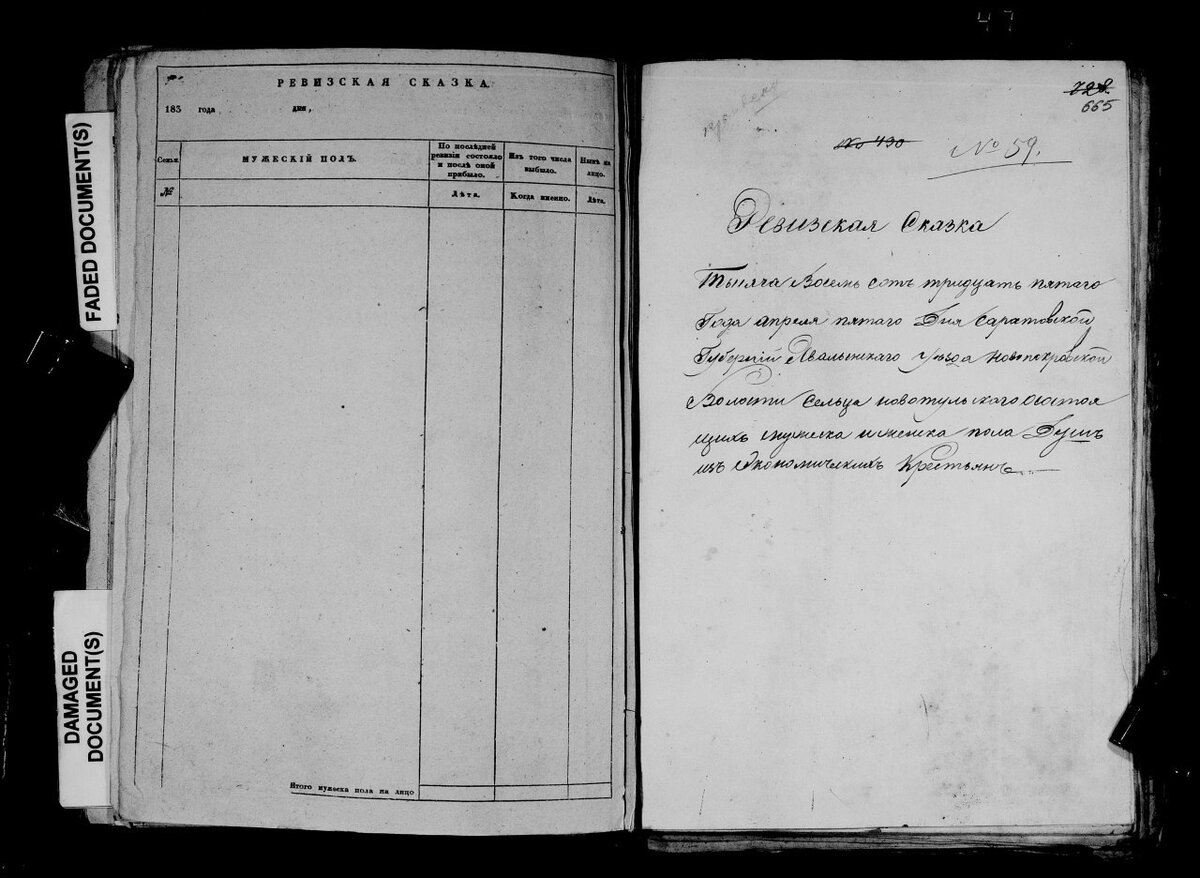 47
FADED DOCUMENT(S)
DAMAGED DOCUMENT(S)
РЕВИЗСКАЯ СКАЗКА.
183 года дня,
Семьи
МУЖЕСКІЙ ПОЛЪ.
По послѣдней ревизіи состояло и послѣ оной прибыло.
Изъ того числа выбыло.
Нынѣ на лицо.
№
Лѣта.
Когда именно.
Лѣта.
Итого мужеска пола на лицо
728
665
No 430
No 59.
Ревизская Сказка
Тысяча Восемь сотъ тридцать пятаго
Года апреля пятаго Дня Саратовской
Губерніи Хвалынскаго уѣзда Новопокровской
Волости Сельца новотульскаго осостоя
щихъ мужеска и женска пола Душъ
изъ Экономическихъ Крестьянъ